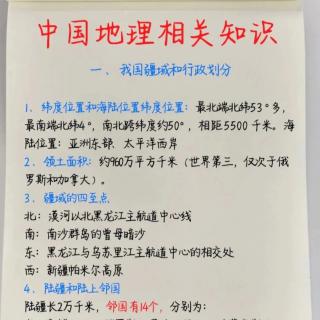 中国地理相关知识
一、我国疆域和行政划分
1、纬度位置和海陆位置纬度位置：最北端北纬53°多，
最南端北纬4°，南北跨纬度约50°，相距5500千米。海
陆位置：亚洲东部 太平洋西岸
2、领土面积：约960万平方千米（世界第三，仅次于俄
罗斯和加拿大）。
3、疆域的四至点
北：漠河以北黑龙江主航道中心线
南：南沙群岛的曾母暗沙
东：黑龙江与乌苏里江主航道中心的相交处
西：新疆帕米尔高原
4、陆疆和陆上邻国
陆疆长2万千米，邻国有14个，分别为：